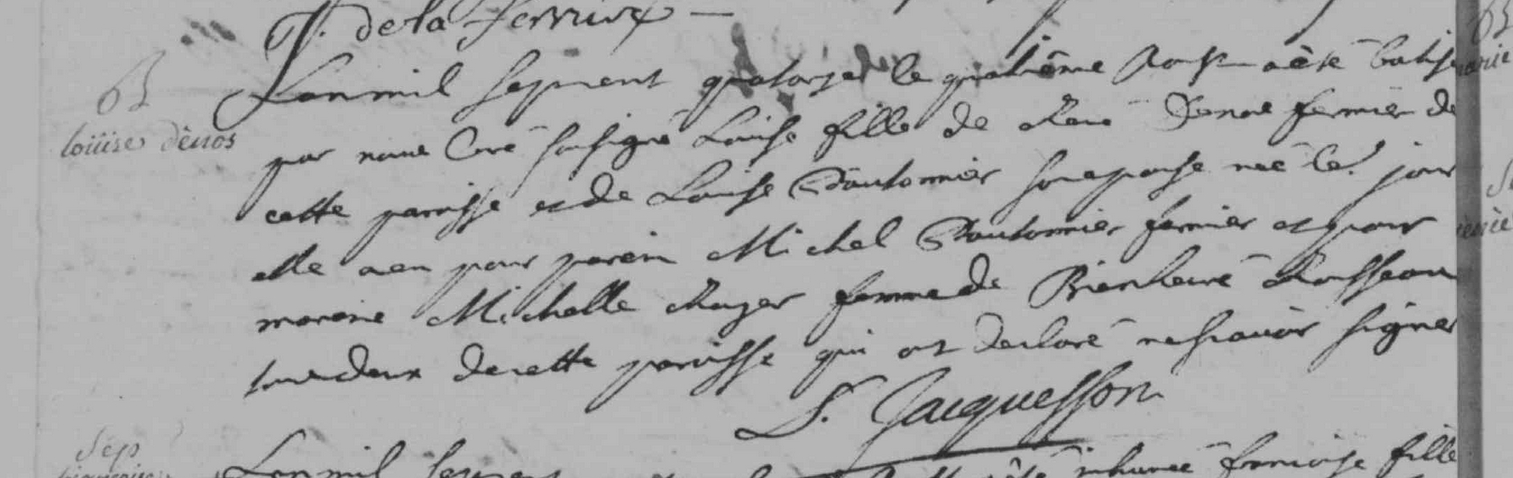 de la Ferriere
B
Louise dénos
Lan mil sept cent quatorze le quatrième Aoust a été batisé
par nous Curé sousigné Louise fille de René Denos fermier de
cette paroisse et de Louise Dautonnier son epouse née le jour
elle a eu pour parein Michel Dautonnier fermier et pour
mareine Michelle Roger femme de Bienheuré Rousseau
tous deux de cette paroisse qui ont declaré ne scavoir signer
S. Jacquesson
Sep
Lan mil sept cent inhumée francoise fille